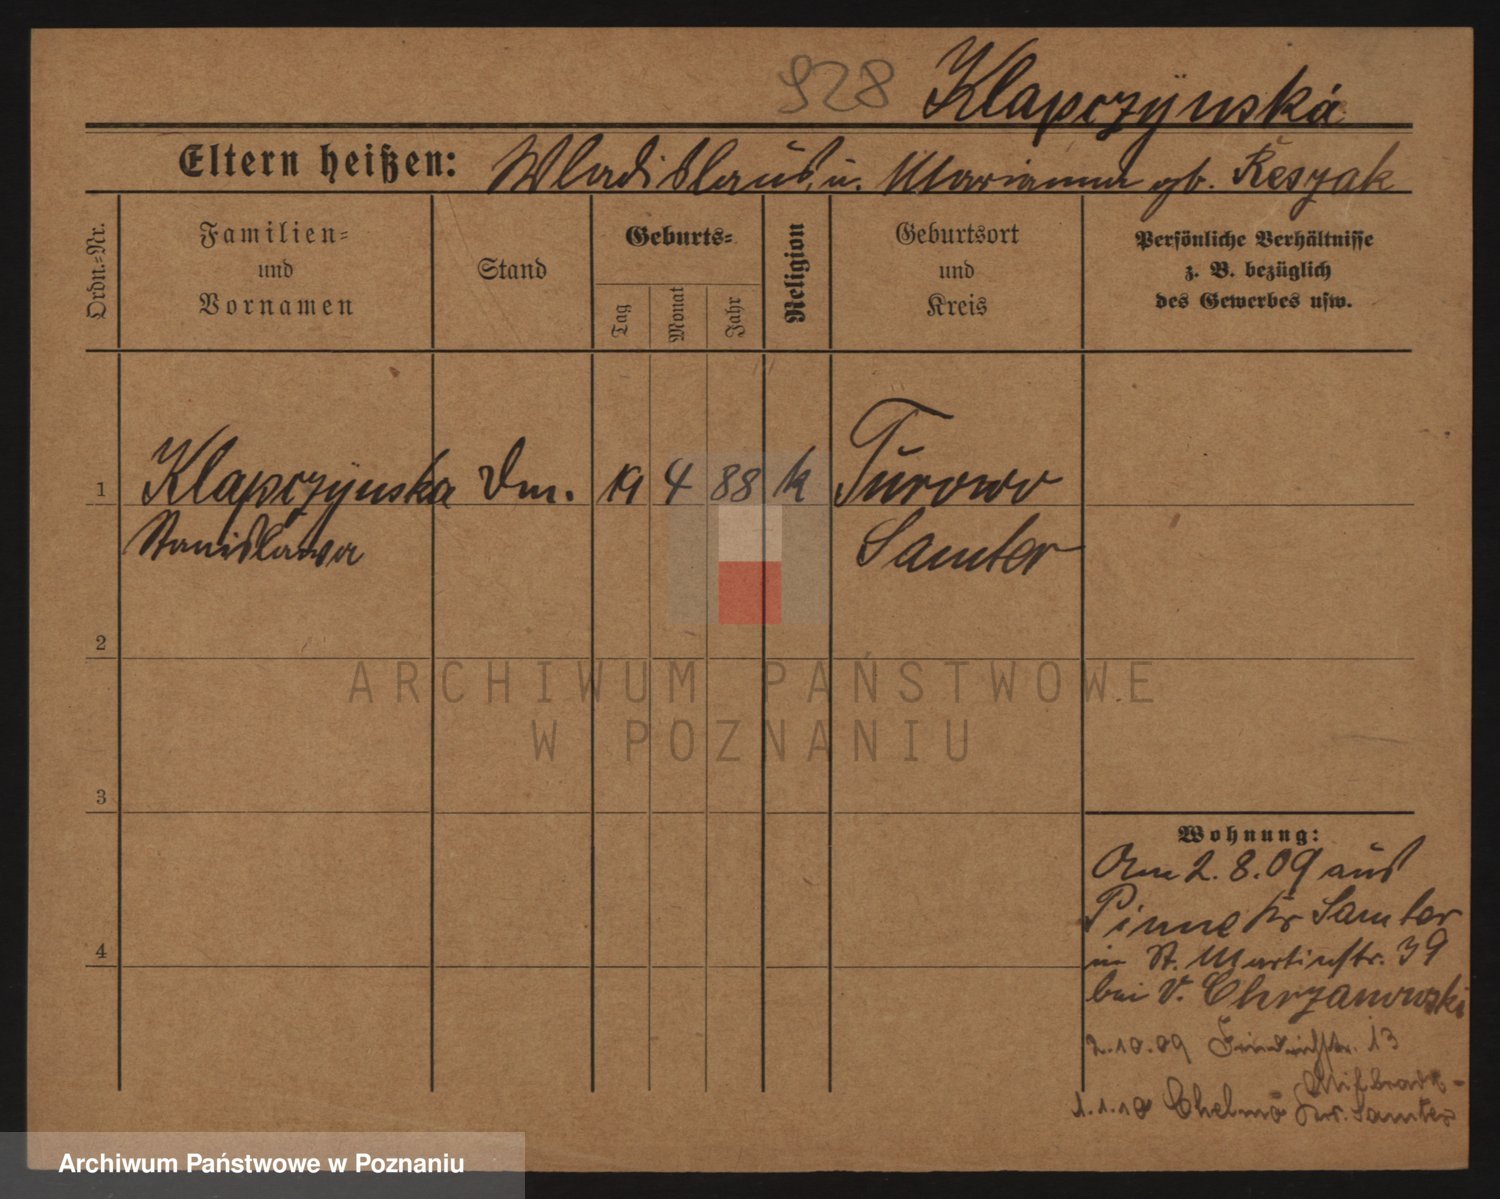 928 Klapczynska
Eltern heißen: Wladislaus u. Marianna gb. Keszak
Ordn.=Nr.
Familien=
und
Vornamen
Stand
Geburts=
Tag
Monat
Jahr
Religion
Geburtsort
und
Kreis
Persönliche Verhältnisse
z. B. bezüglich
des Gewerbes usw.
1 Klapczynska Dm. 19 4 88 k Turowo
Stanislawa Samter
2
3
4
Wohnung:
Am 2.8.09 aus
Pinne Kr Samter
in St. Martinstr. 39
bei V. Chrzanowski
2.10.09 Friedrichstr. 13
1.1.10 Chelmo Kr. Samter
ARCHIWUM PAŃSTWOWE
W POZNANIU
Archiwum Państwowe w Poznaniu